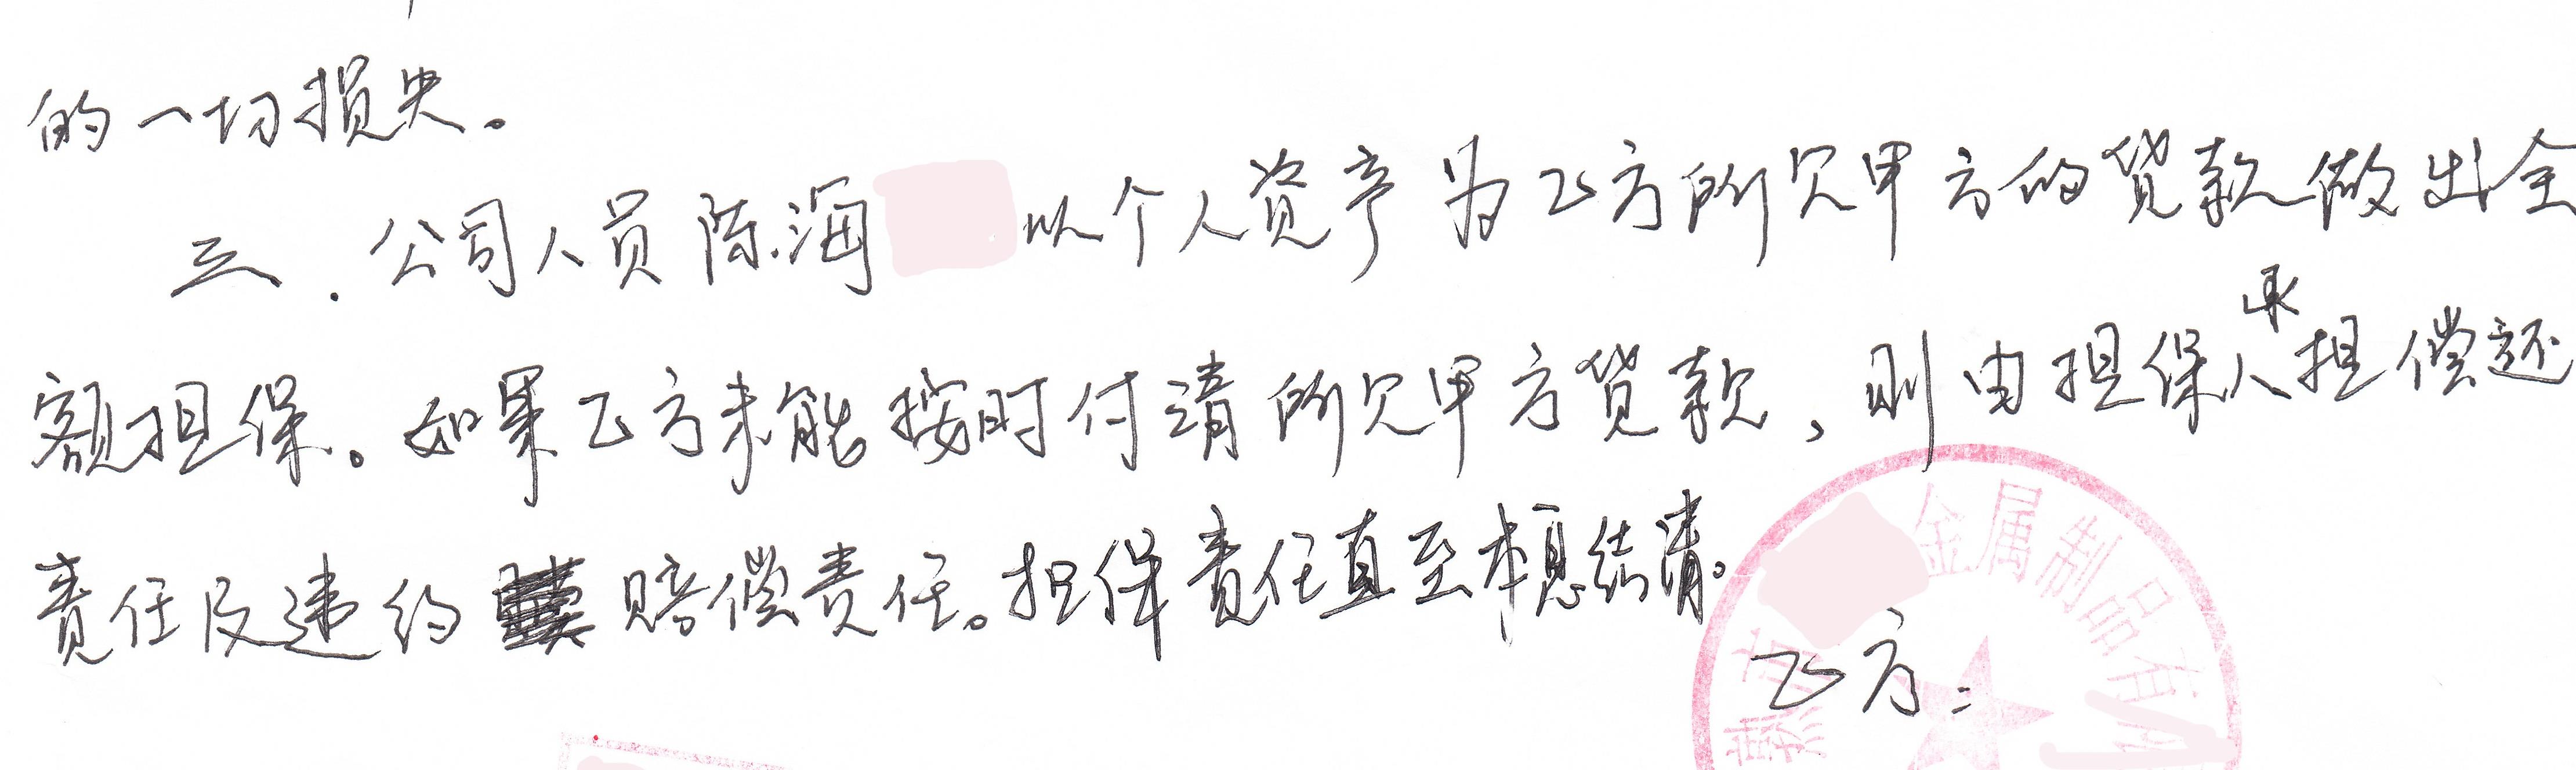 的一切损失。
三.公司人员陈海 以个人资产为乙方所欠甲方的货款做出全
额担保。如果乙方未能按时付清所欠甲方货款,则由担保人承担偿还
责任及违约 赔偿责任。担保责任直至本息结清。
金属制品有
乙方: